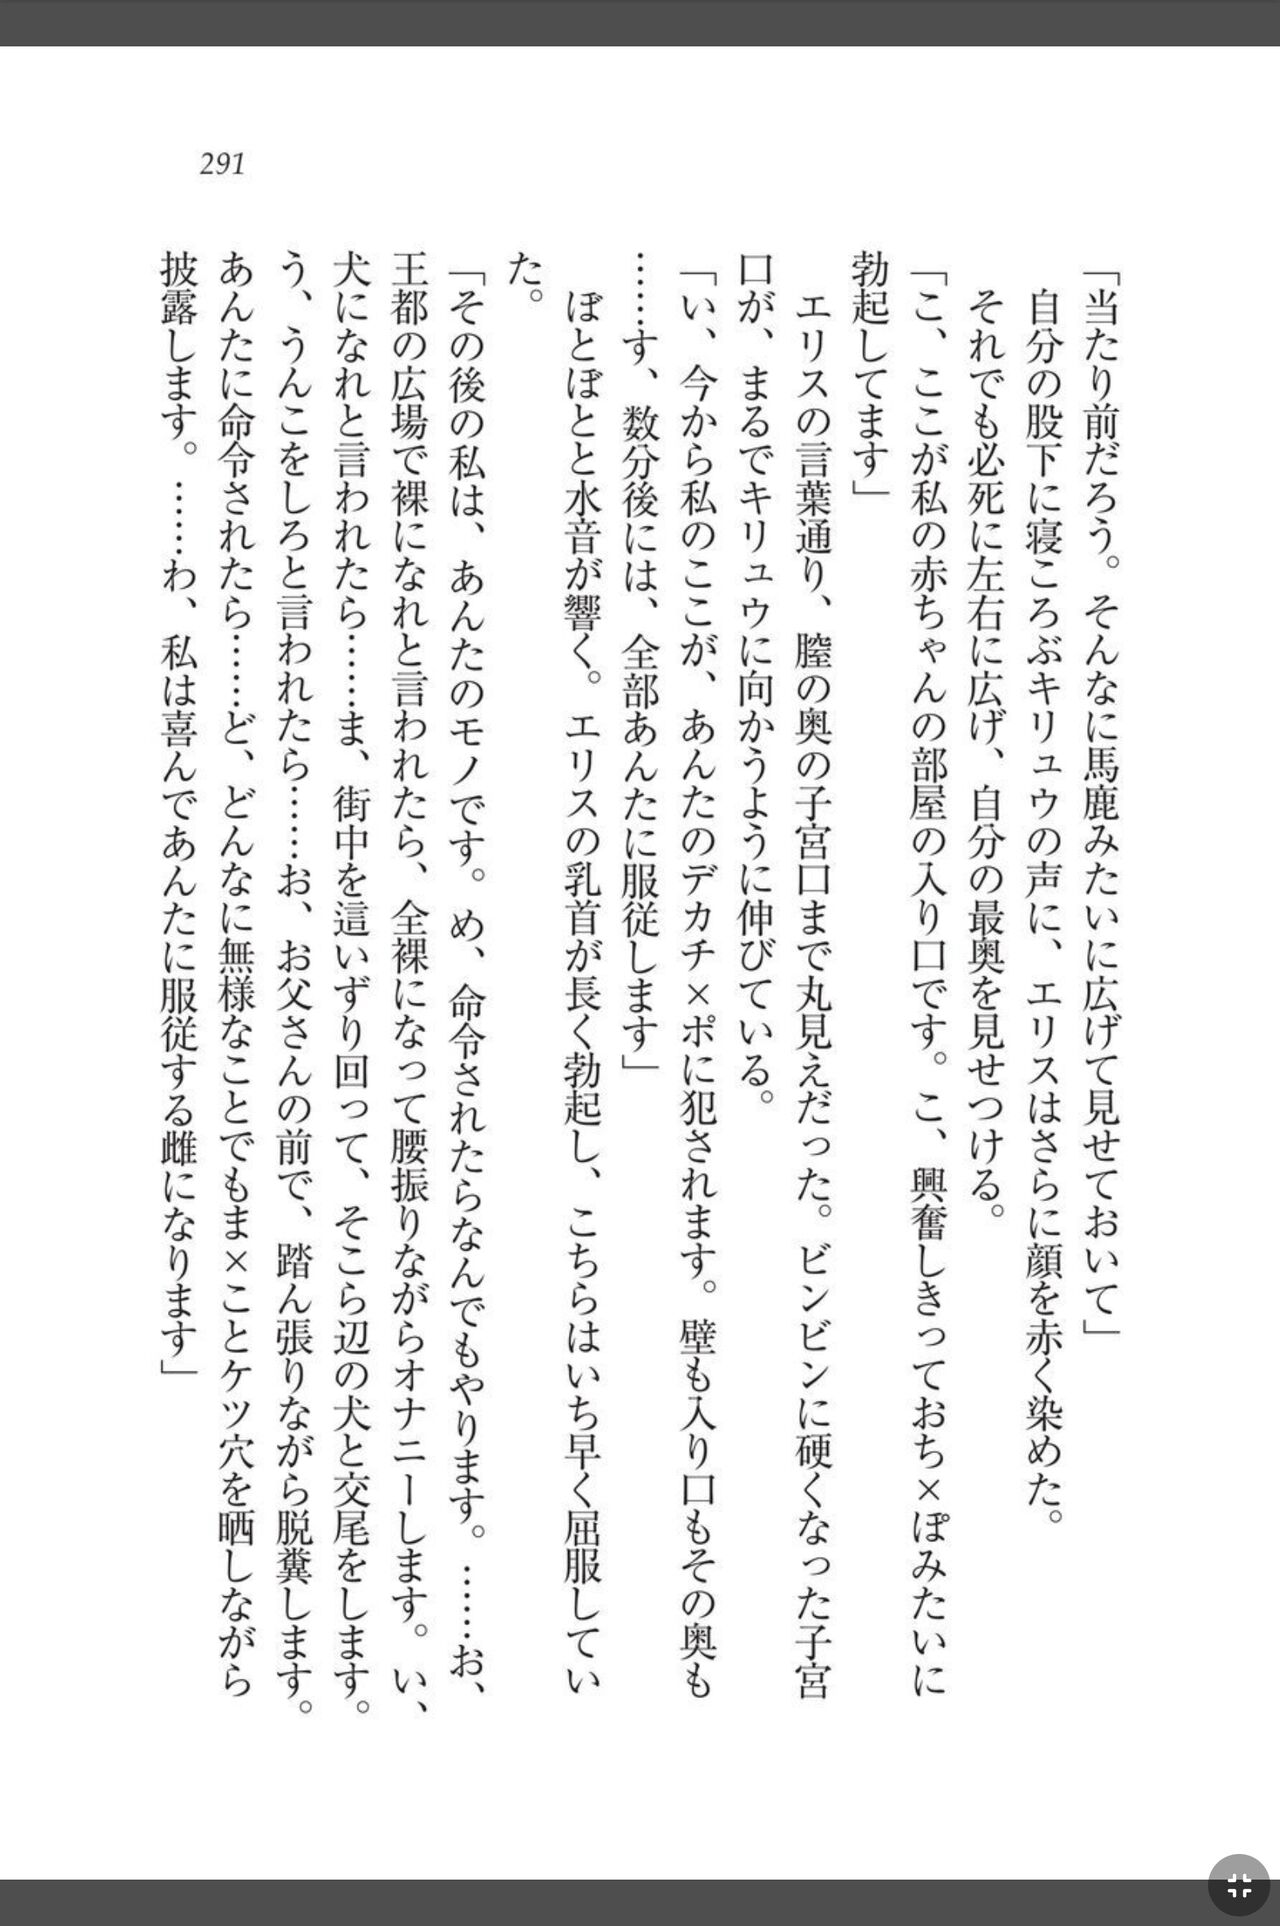 291
「当たり前だろう。そんなに馬鹿みたいに広げて見せておいて」
自分の股下に寝ころぶキリュウの声に、エリスはさらに顔を赤く染めた。
それでも必死に左右に広げ、自分の最奥を見せつける。
「こ、ここが私の赤ちゃんの部屋の入り口です。こ、興奮しきっておち×ぽみたいに
勃起してます」
エリスの言葉通り、膣の奥の子宮口まで丸見えだった。ビンビンに硬くなった子宮
口が、まるでキリュウに向かうように伸びている。
「い、今から私のここが、あんたのデカチ×ポに犯されます。壁も入り口もその奥も
……す、数分後には、全部あんたに服従します」
ぼとぼとと水音が響く。エリスの乳首が長く勃起し、こちらはいち早く屈服してい
た。
「その後の私は、あんたのモノです。め、命令されたらなんでもやります。……お、
王都の広場で裸になれと言われたら、全裸になって腰振りながらオナニーします。い、
犬になれと言われたら……ま、街中を這いずり回って、そこら辺の犬と交尾をします。
う、うんこをしろと言われたら……お、お父さんの前で、踏ん張りながら脱糞します。
あんたに命令されたら……ど、どんなに無様なことでもま×ことケツ穴を晒しながら
披露します。……わ、私は喜んであんたに服従する雌になります」